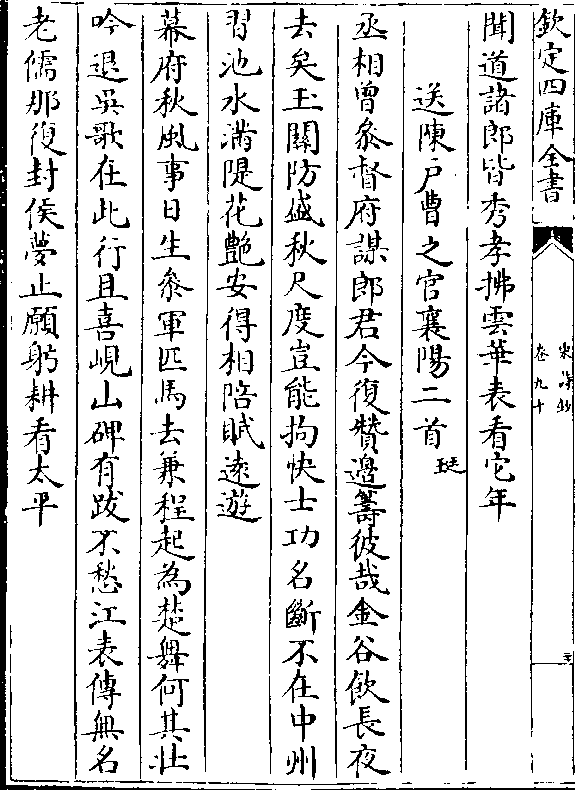 欽定四庫全書
宋詩鈔
卷九十
聞道諸郎皆秀孝拂雲華表看它年
送陳戶曹之官襄陽二首
丞相曾參督府謀郎君今復贊邊籌彼哉金谷飲長夜
去矣玉關防盛秋尺度豈能拘快士功名斷不在中州
習池水滿隄花艶安得相陪眂遠遊
幕府秋風事日生參軍匹馬去兼程起為楚舞何其壯
吟退吳歌在此行且喜峴山碑有跋不愁江表傳無名
老儒那復封侯夢止願躬耕看太平